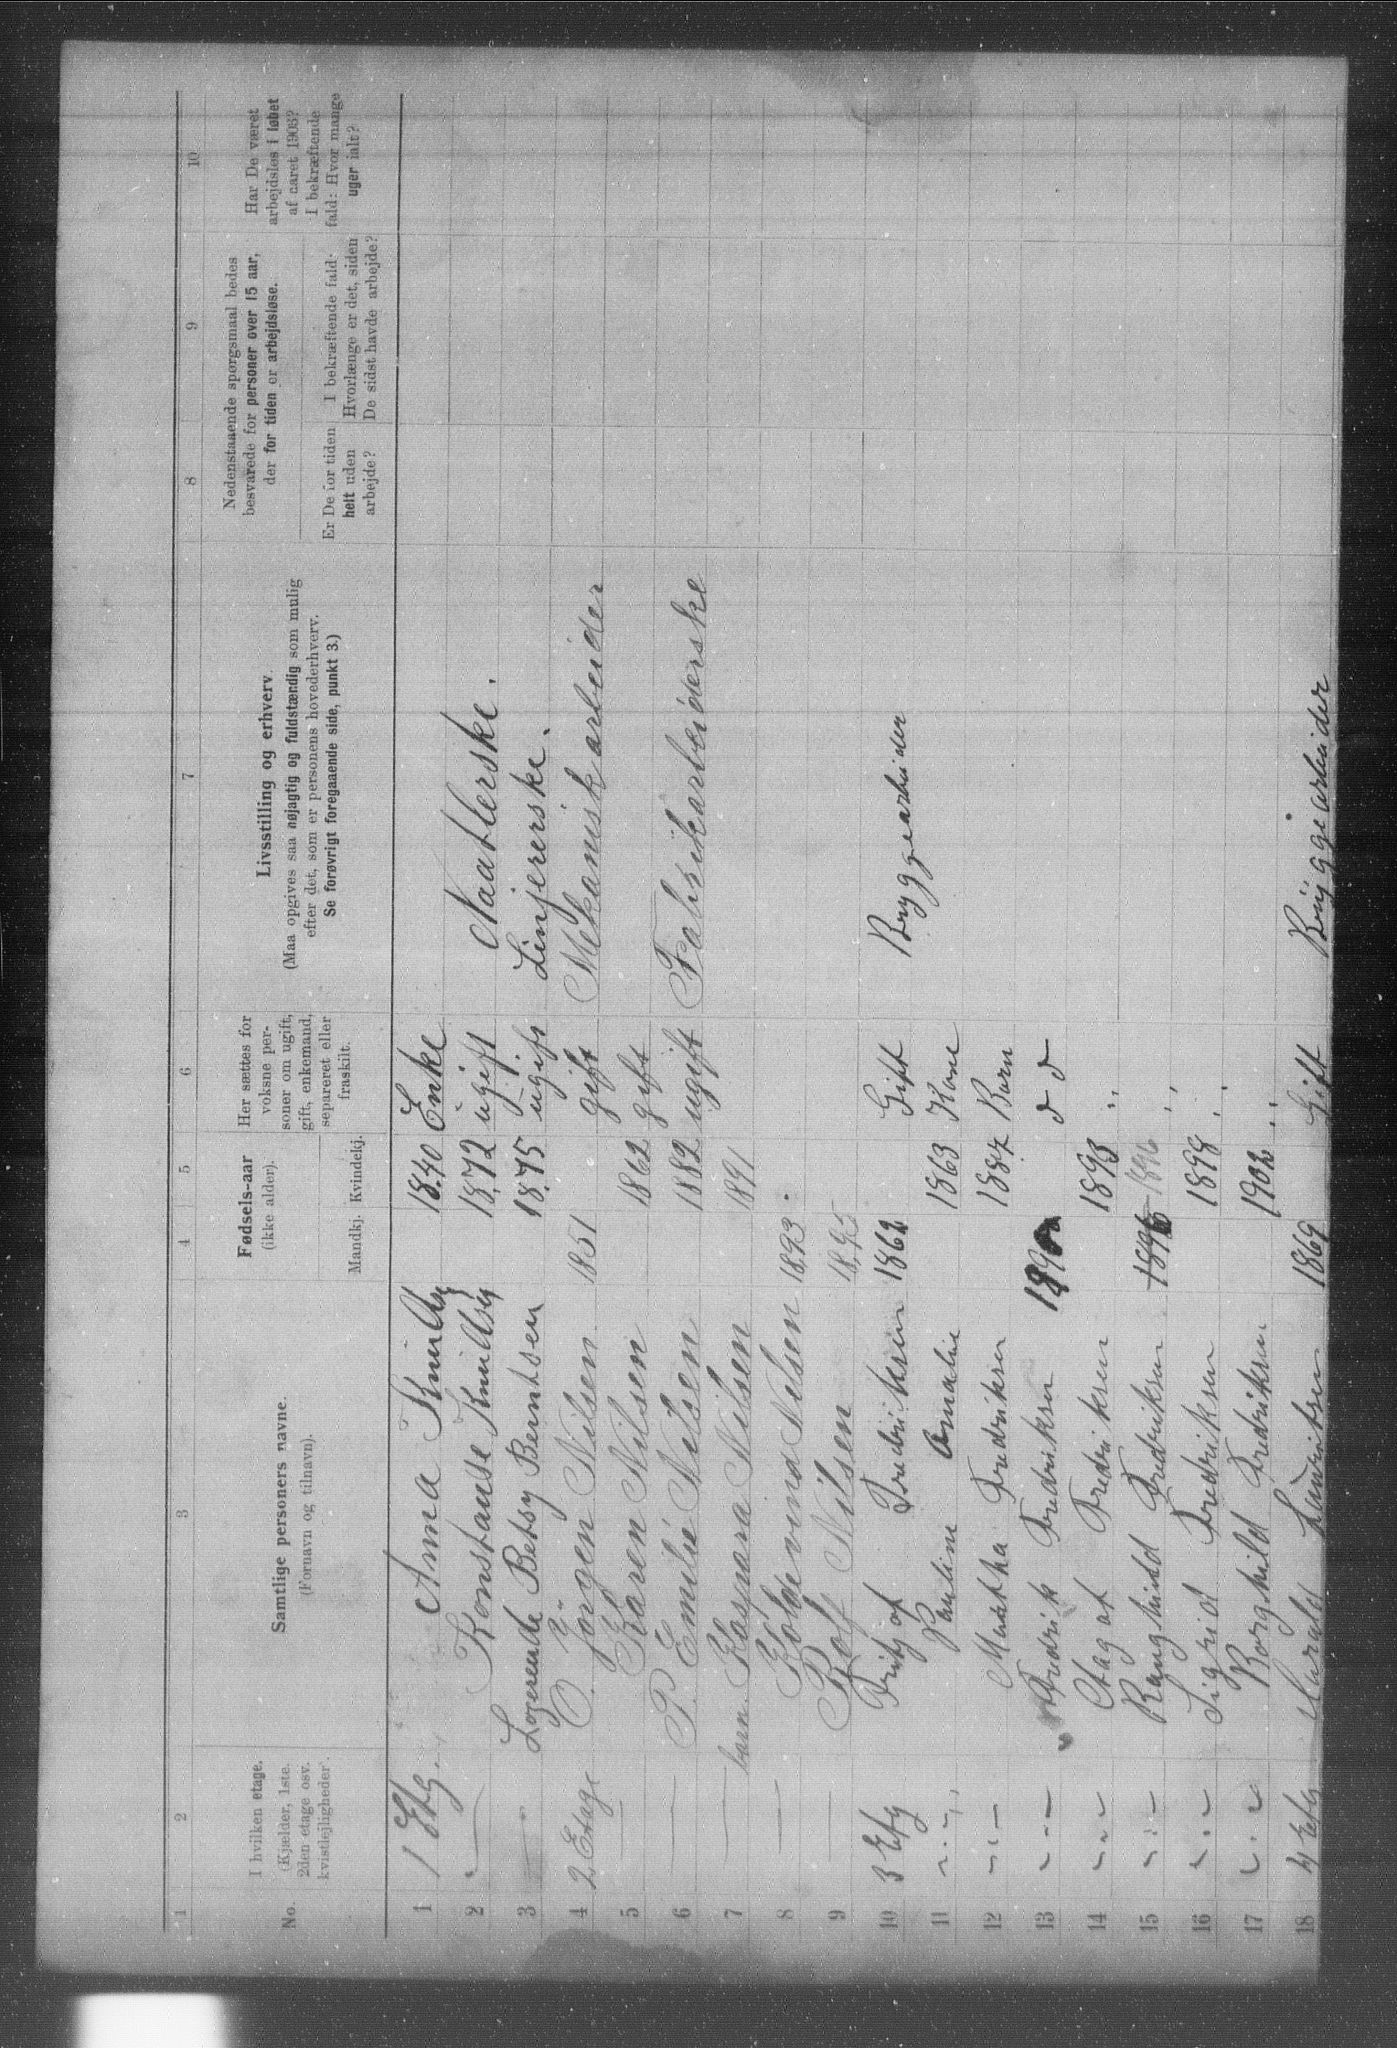 1 2 3 4 5 6 7 8 9 10
No.
I hvilken etage.
(Kjælder, 1ste.
2den etage osv.
kvistlejligheder)
Samtlige personers navne.
(Fornavn og tilnavn).
Fødsels-aar
(ikke alder).
Mandkj. Kvindekj.
Her sættes for
voksne per-
soner om ugift,
gift, enkemand,
separeret eller
fraskilt.
Livsstilling og erhverv.
(Maa opgives saa nøjagtig og fuldstændig som mulig
efter det, som er personens hovederhverv.
Se forøvrigt foregaaende side, punkt 3.)
Nedenstaaende spørgsmaal bedes
besvarede for personer over 15 aar,
der for tiden er arbejdsløse.
Er De for tiden
helt uden
arbejde?
I bekræftende fald:
Hvorlænge er det, siden
De sidst havde arbejde?
Har De været
arbejdsløs i løbet
af aaret
I bekræftende
fald: Hvor mange
uger ialt?
1 1 Etg. Anna 1840 Enke
2 Konstanse 1872 ugift Naatlerske.
3 Logerende Betsy Berntsen 1875 ugift Linjererske.
4 2 Etage O. Jörgen Nilsen 1851 gift Mekanisk arbeider
5 — Karen Nilsen 1862 gift
6 — P. Emilie Nilsen 1882 ugift Fabrikarbeiderske
7 — barn Kaspara Nilsen 1891
8 — Koldevind Nilsen 1893.
9 — Rolf Nilsen 1895
10 3 Etg Fritjof Fredriksen 1862 Gift Bryggearbeider
11 " Pauline Amalie 1863 Kone
12 " Martha Fredriksen 1887 Barn
13 " Fredrik Fredriksen
14 " Aagot Fredriksen 1893 "
15 " Ragnhild Fredriksen 1896 "
16 " Sigrid Fredriksen 1898 "
17 " Borghild Fredriksen 1902 "
18 4 Etg Harald Lauritsen 1869 Gift Bryggearbeider